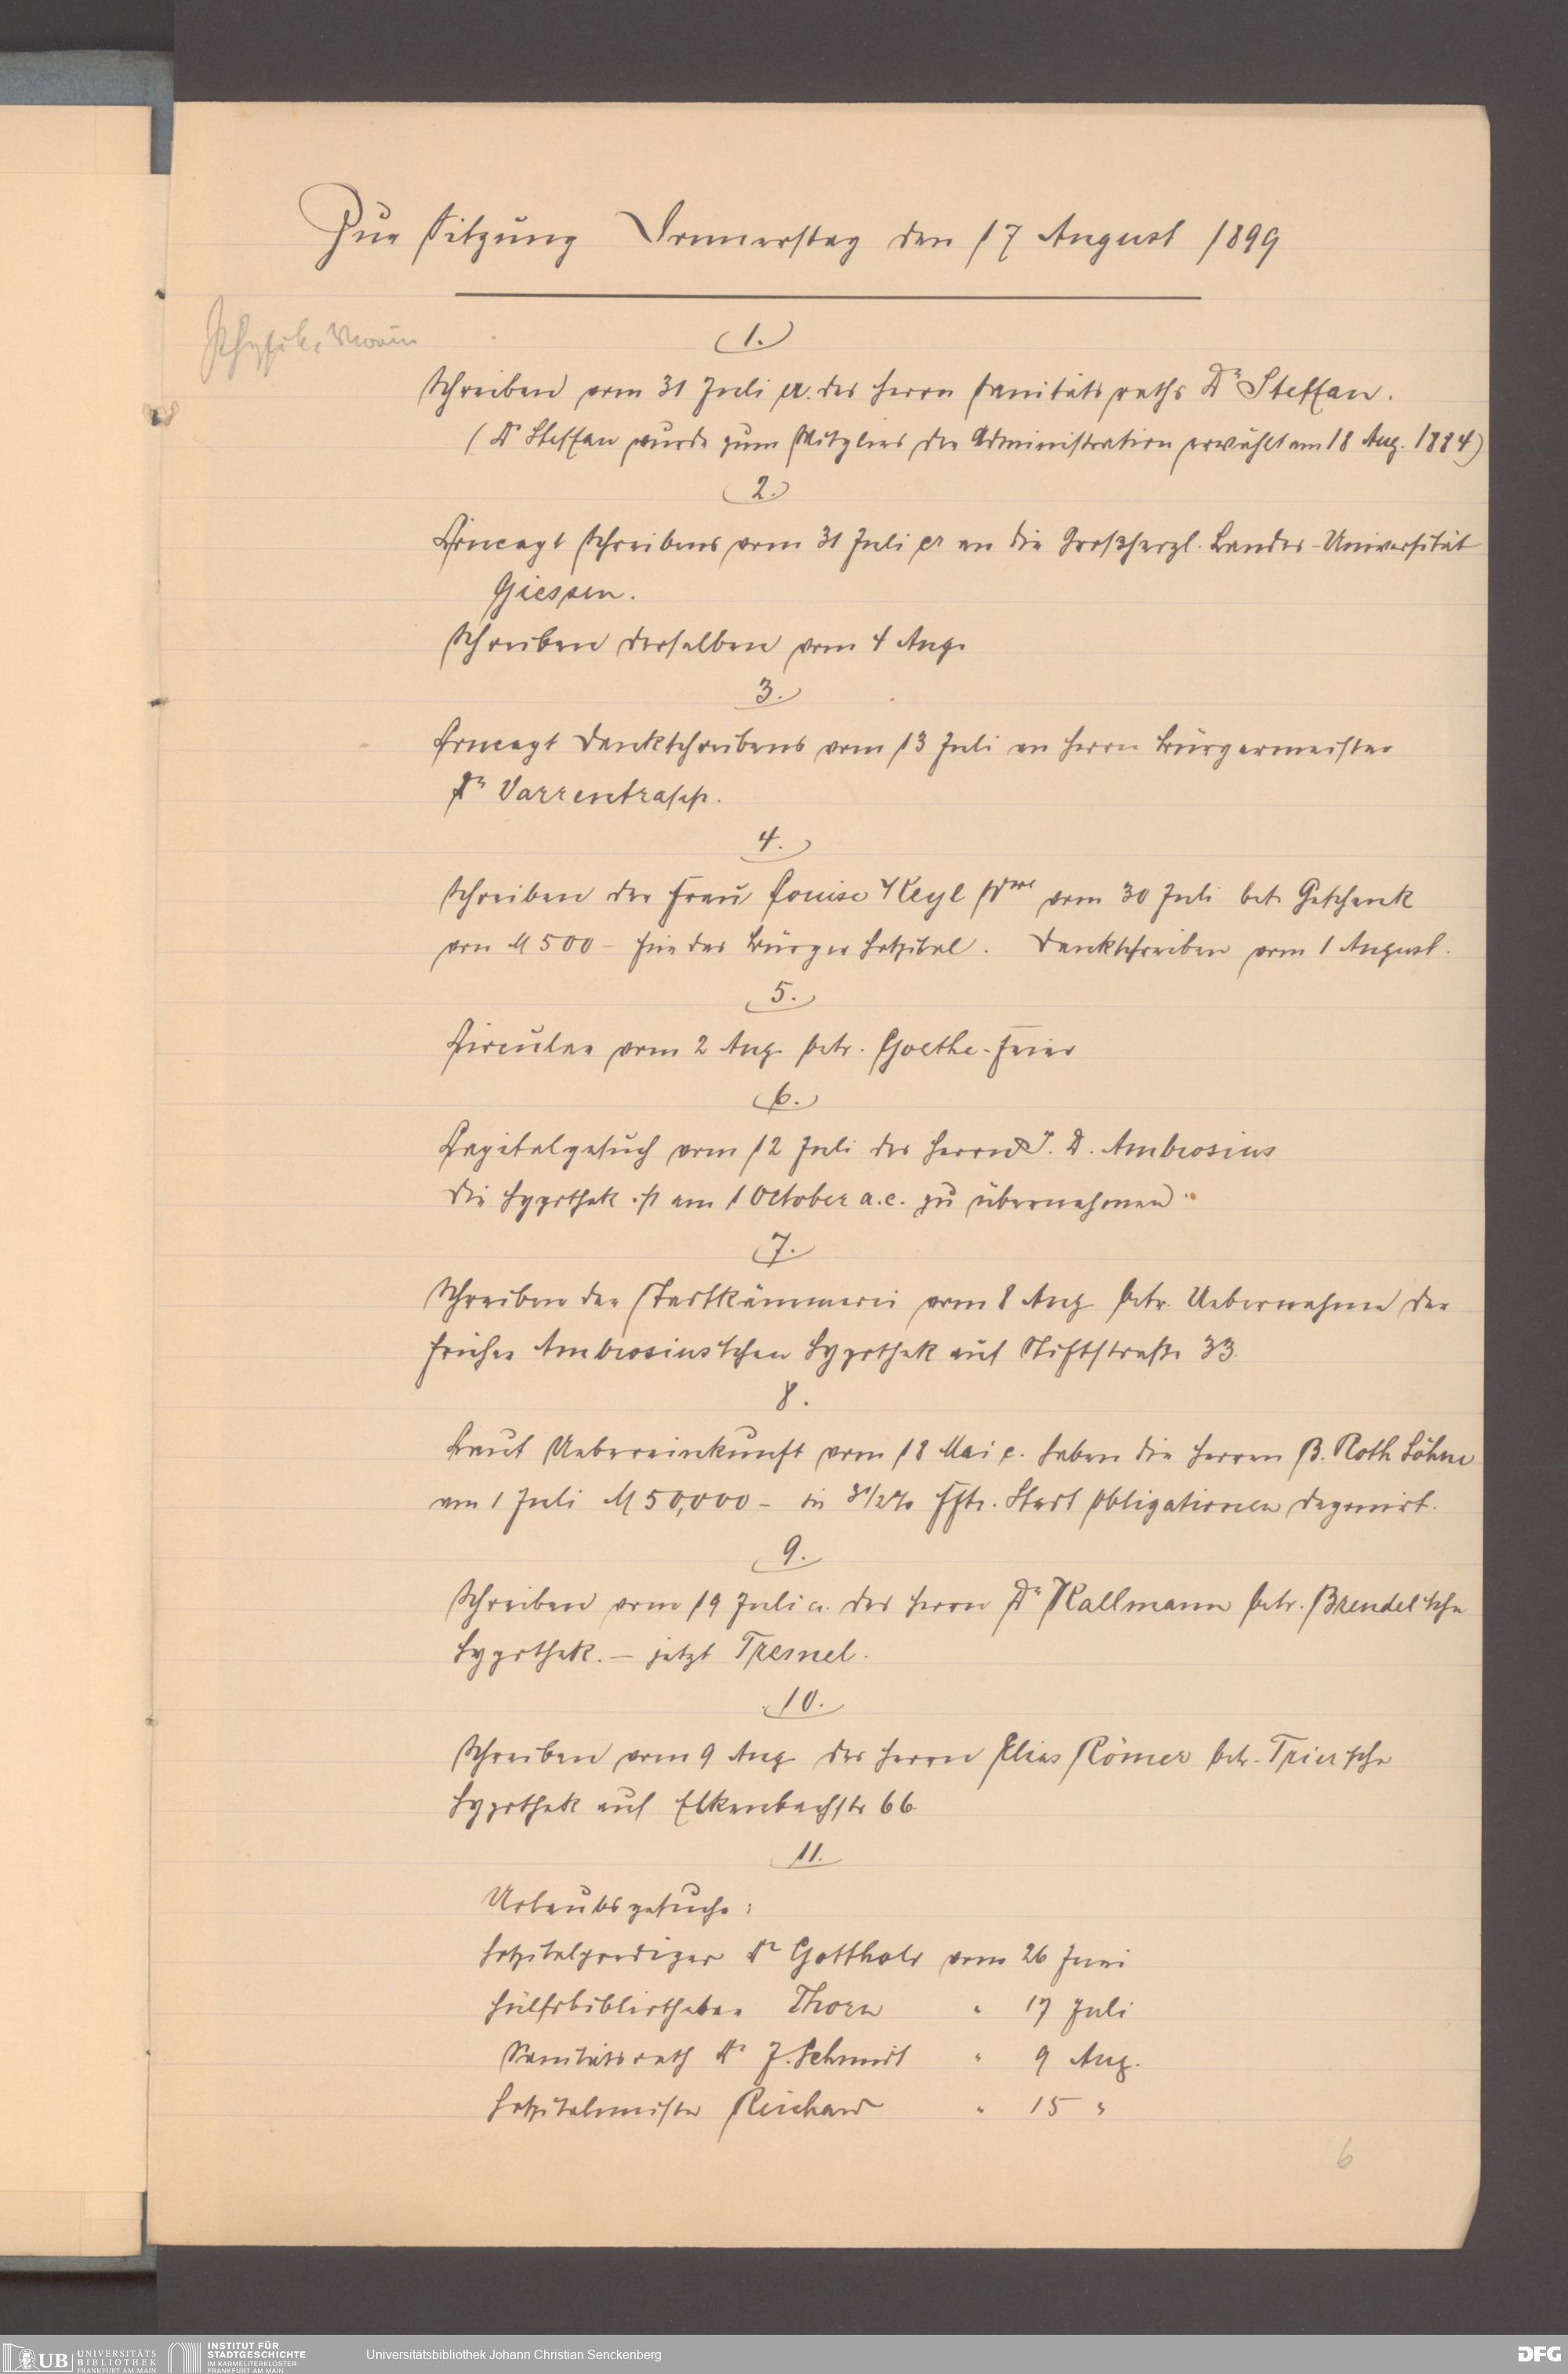 Zur Sitzung Donnerstag den 17 August 1899
Physik. Verein
1.
Schreiben vom 31 Juli cr. des Herrn Sanitätsraths Dr Steffan.
(Dr Steffan wurde zum Mitglied der Administration erwählt am 18 Aug. 1884)
2.
Concept Schreibens vom 31 Juli cr an die Großherzgl. Landes-Universität
Giessen.
Schreiben derselben vom 4 Aug.
3.
Concept Dankschreibens vom 13 Juli an Herrn Bürgermeister
Dr Varrentrapp.
4.
Schreiben der Frau Louise Keyl Wwe vom 30 Juli betr. Geschenk
von M 500 – für das Bürger Hospital. Dankschreiben vom 1 August.
5.
Circular vom 2 Aug. betr. Goethe-Feier
6.
Capitalgesuch vom 12 Juli des Herrn J. D. Ambrosius
die Hypothek ist am 1 October a.c. zu übernehmen.
7.
Schreiben der Stadtkämmerei vom 8 Aug betr. Uebernahme der
früher Ambrosius'schen Hypothek auf Stiftstraße 33.
8.
Laut Uebereinkunft vom 18 Mai c. haben die Herren B. Roth Söhne
am 1 Juli M 50,000 – in 3 1/2 % Fftr. Stadt Obligationen deponirt.
9.
Schreiben vom 19 Juli cr. des Herrn Dr Kallmann betr. Brendel'sche
Hypothek. – jetzt Tresnel.
10.
Schreiben vom 9 Aug des Herrn Elias Römer betr. Trier'sche
Hypothek auf Elkenbachstr 66
11.
Urlaubsgesuche:
Hospitalprediger Dr Gotthold vom 26 Juni
Hülfsbibliothekar Thorn " 17 Juli
Sanitätsrath Dr J. Schmidt " 9 Aug.
Hospitalmeister Reichard " 15 "
6
UB UNIVERSITÄTS
BIBLIOTHEK
FRANKFURT AM MAIN
INSTITUT FÜR
STADTGESCHICHTE
IM KARMELITERKLOSTER
FRANKFURT AM MAIN
Universitätsbibliothek Johann Christian Senckenberg
DFG